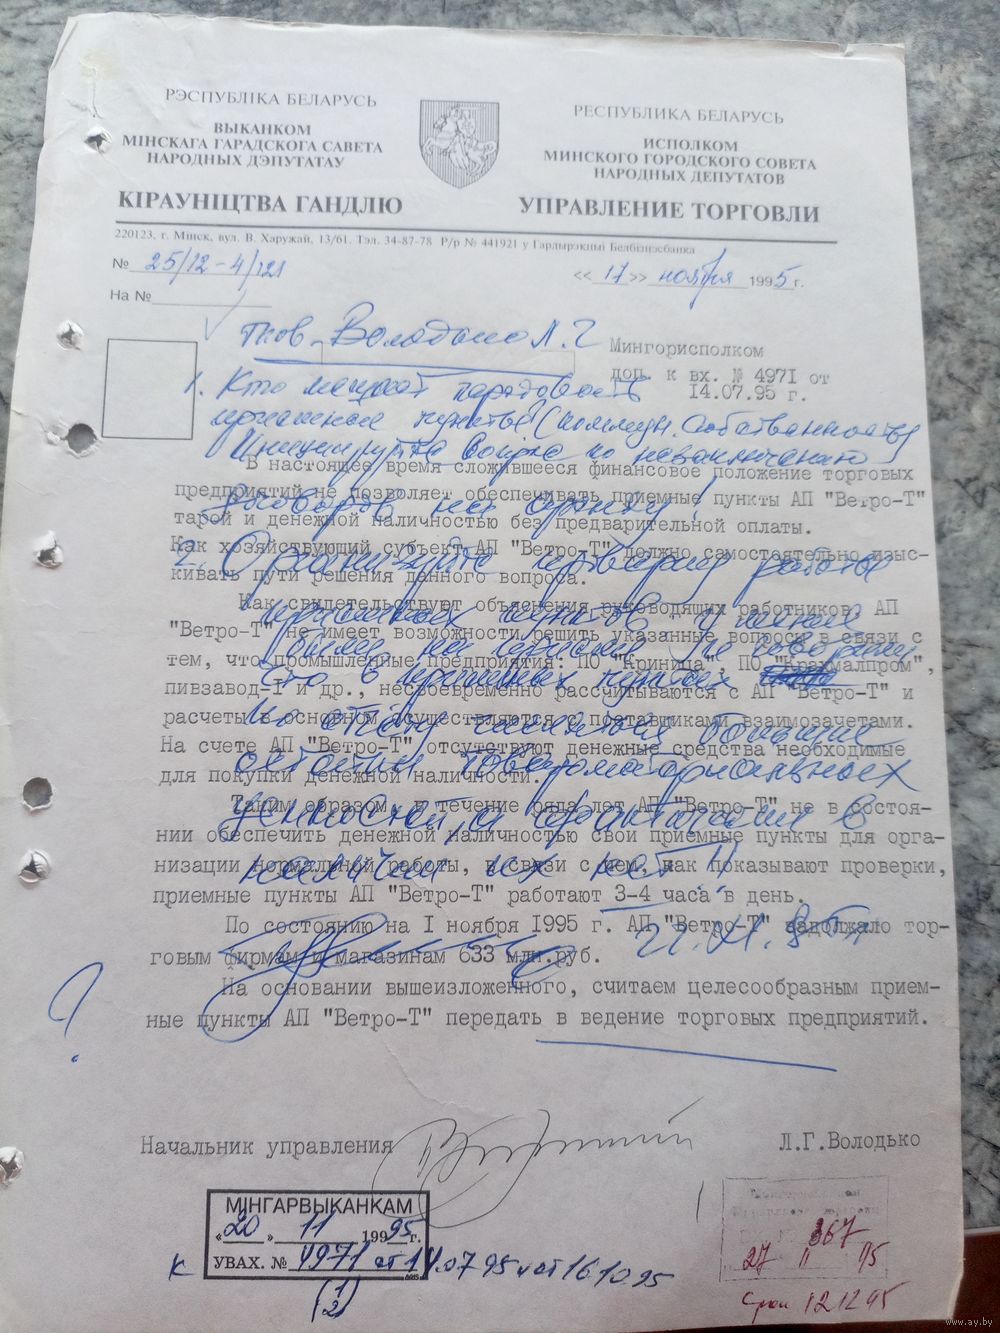 РЭСПУБЛІКА БЕЛАРУСЬ
ВЫКАНКОМ
МІНСКАГА ГАРАДСКАГА САВЕТА
НАРОДНЫХ ДЭПУТАТАУ
КІРАУНІЦТВА ГАНДЛЮ
РЕСПУБЛИКА БЕЛАРУСЬ
ИСПОЛКОМ
МИНСКОГО ГОРОДСКОГО СОВЕТА
НАРОДНЫХ ДЕПУТАТОВ
УПРАВЛЕНИЕ ТОРГОВЛИ
220123, г. Мінск, вул. В. Харужай, 13/61. Тэл. 34-87-78 Р/р № 441921 у Гардырэкцыі Белбізнэсбанка
№ 25/12-4/121
«17» ноября 1995 г.
На №
тов. Володько Л. Г
Мингорисполком
доп. к вх. № 4971 от
14.07.95 г.
1. Кто мешает передовать
приемные пункты (коммун. собственность)
Инициируйте вопрос по незаключению
договоров на аренду!
В настоящее время сложившееся финансовое положение торговых
предприятий не позволяет обеспечивать приемные пункты АП "Ветро-Т"
тарой и денежной наличностью без предварительной оплаты.
Как хозяйствующий субъект АП "Ветро-Т" должно самостоятельно изыс-
кивать пути решения данного вопроса.
2. Организуйте проверку работы
приемных пунктов
Как свидетельствуют объяснения руководящих работников, АП
"Ветро-Т" не имеет возможности решить указанные вопросы в связи с
тем, что промышленные предприятия: ПО "Криница", ПО "Крахмалпром",
пивзавод-I и др., несвоевременно рассчитываются с АП "Ветро-Т" и
расчеты в основном осуществляются с поставщиками взаимозачетами.
На счете АП "Ветро-Т" отсутствуют денежные средства необходимые
для покупки денежной наличности.
что в приемных пунктах
большие
остатки товароматериальных
ценностей, а фактически в
наличии их нет!
Таким образом, в течение ряда лет АП "Ветро-Т" не в состоя-
нии обеспечить денежной наличностью свои приемные пункты для орга-
низации нормальной работы, в связи с чем, как показывают проверки,
приемные пункты АП "Ветро-Т" работают 3-4 часа в день.
По состоянию на I ноября 1995 г. АП "Ветро-Т" задолжало тор-
говым фирмам и магазинам 633 млн.руб.
На основании вышеизложенного, считаем целесообразным прием-
ные пункты АП "Ветро-Т" передать в ведение торговых предприятий.
?
Начальник управления
Л.Г.Володько
МІНГАРВЫКАНКАМ
«20» 11 1995 г.
УВАХ. № 4971 от 14.07.95 и от 16.10.95
к
(1
2)
367
27 11 95
Срок 12.12.95
www.ay.by